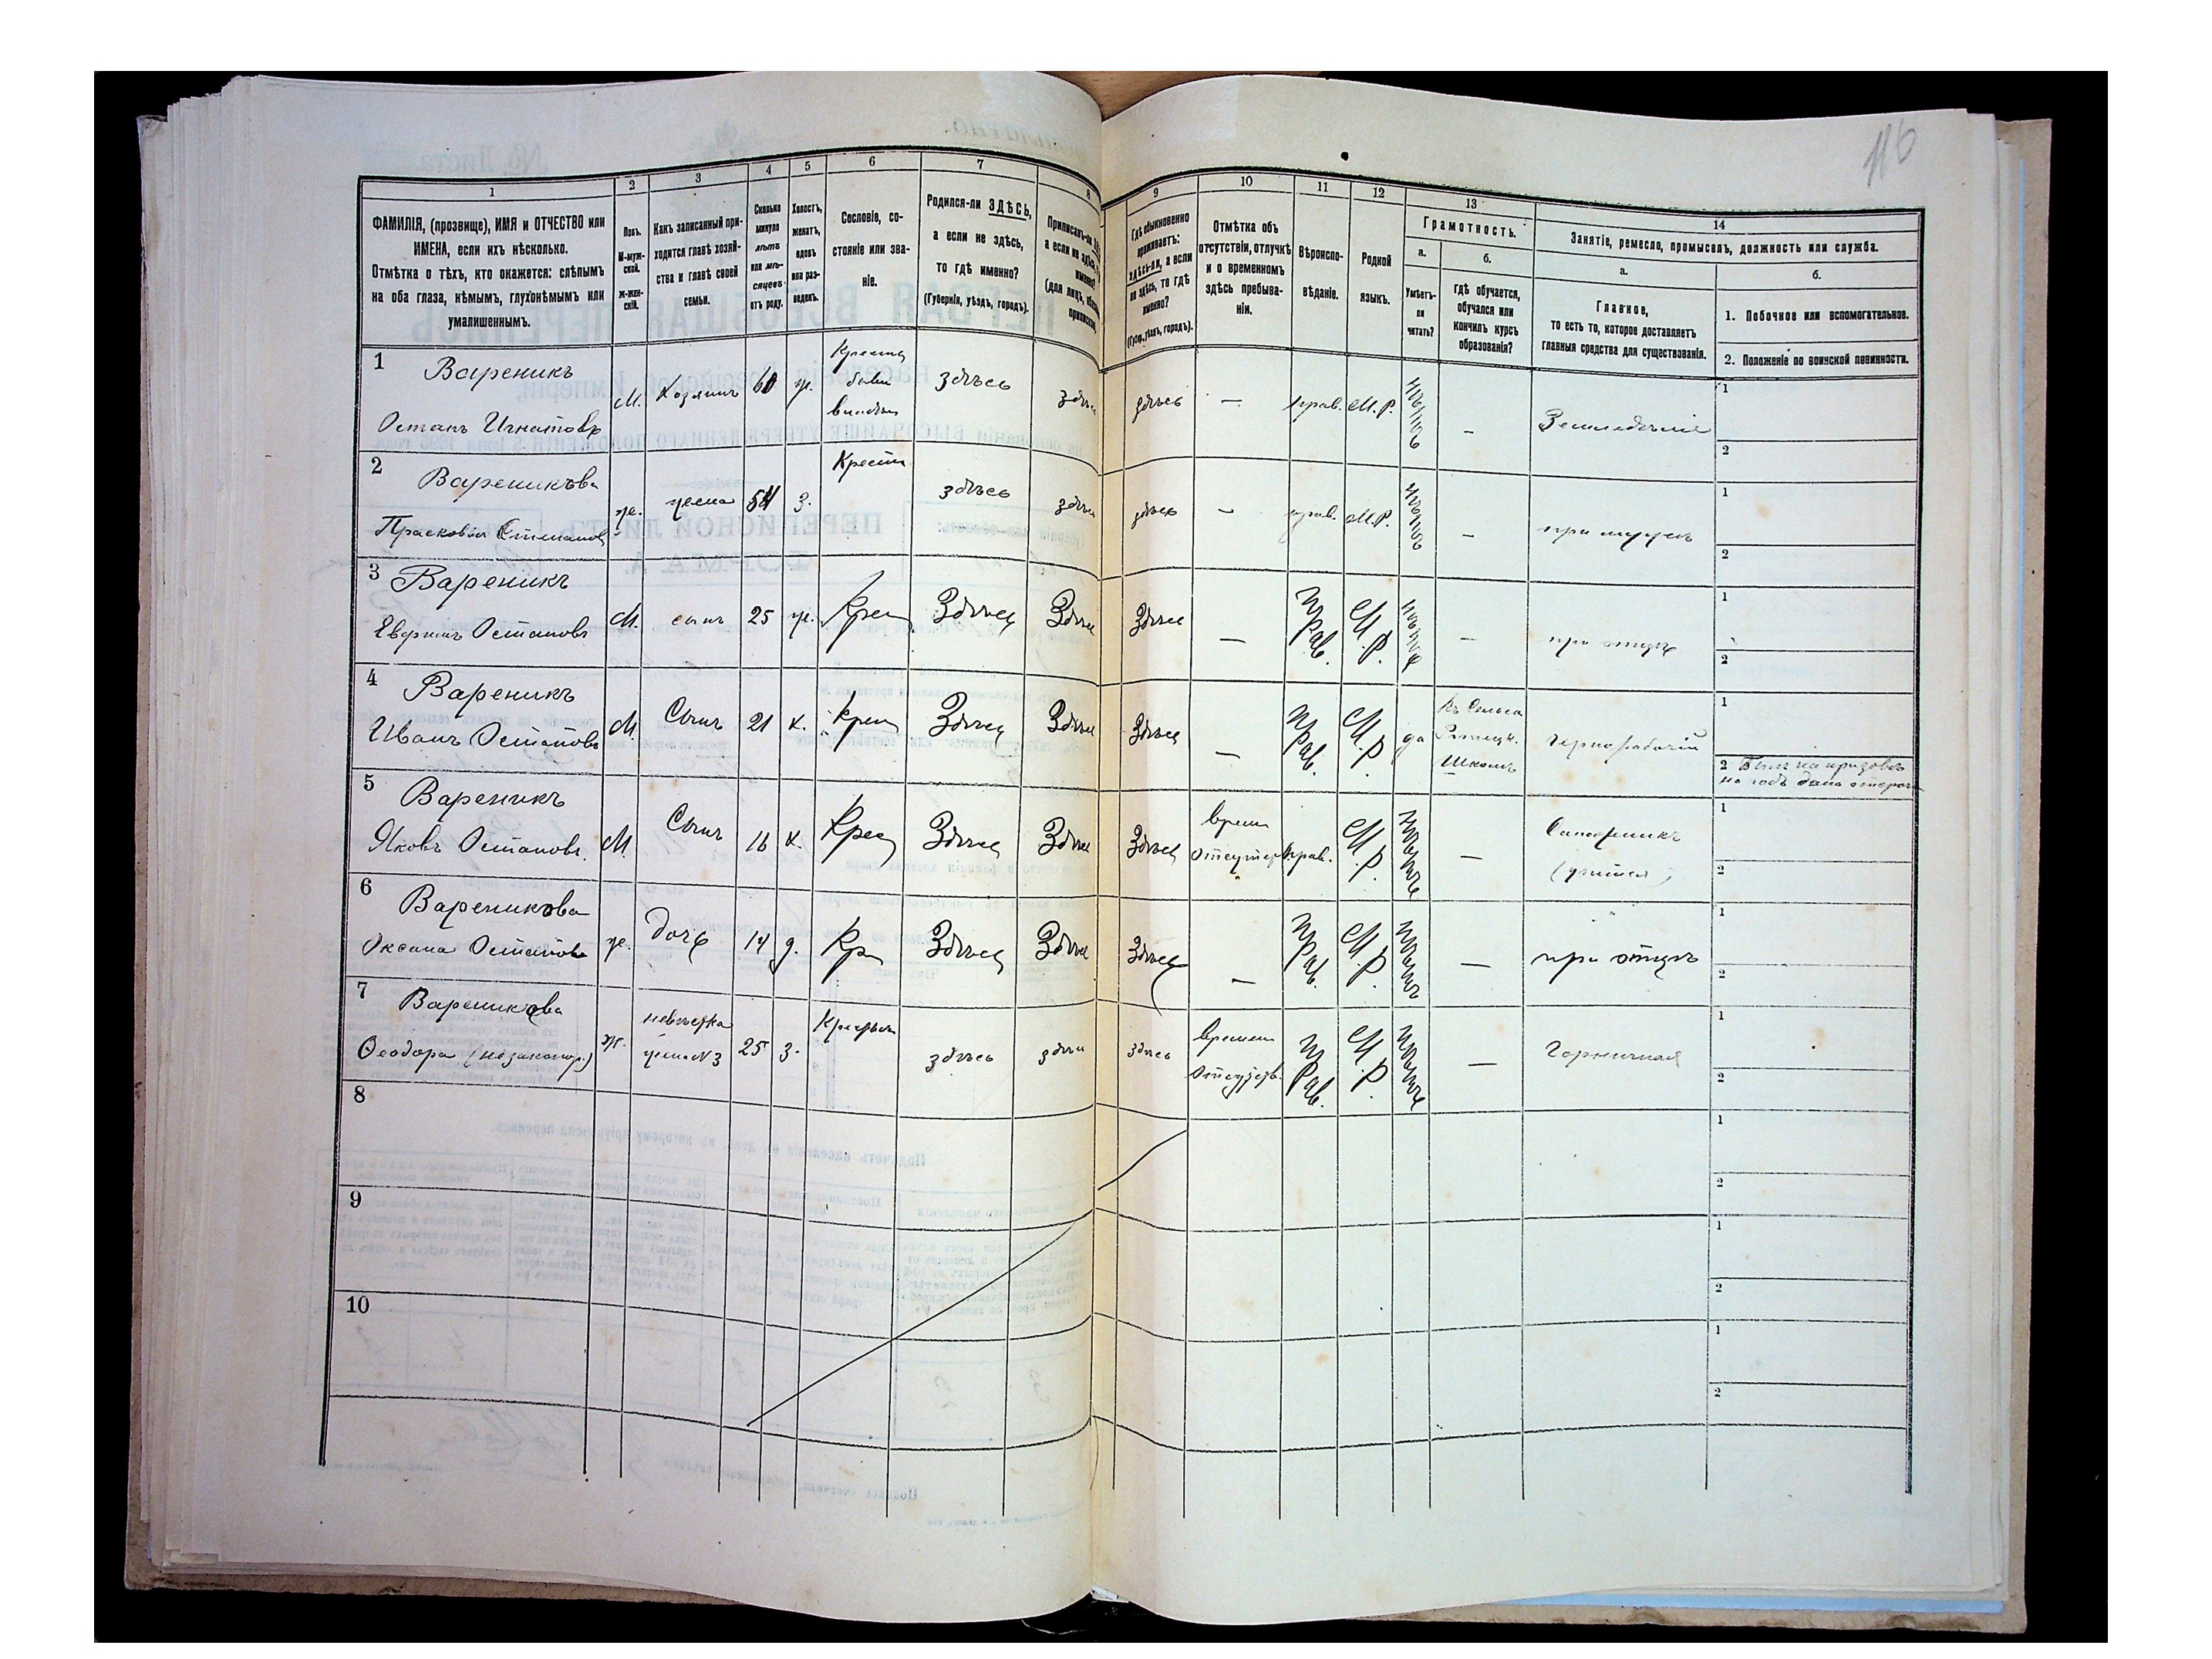 116
1 2 3 4 5 6 7 8 9 10 11 12 13 14
ФАМИЛІЯ, (прозвище), ИМЯ и ОТЧЕСТВО или
ИМЕНА, если ихъ нѣсколько.
Отмѣтка о тѣхъ, кто окажется: слѣпымъ
на оба глаза, нѣмымъ, глухонѣмымъ или
умалишеннымъ.
Полъ.
М-муж-
ской.
ж-жен-
скій.
Какъ записанный при-
ходится главѣ хозяй-
ства и главѣ своей
семьи.
Сколько
минуло
лѣтъ
или мѣ-
сяцевъ
отъ роду.
Холостъ,
женатъ,
вдовъ
или раз-
веденъ.
Сословіе, со-
стояніе или зва-
ніе.
Родился-ли ЗДѢСЬ,
а если не здѣсь,
то гдѣ именно?
(Губернія, уѣздъ, городъ).
Приписанъ-ли
а если не здѣсь,
именно?
(для лицъ,
Гдѣ обыкновенно
проживаетъ:
здѣсь-ли, а если
не здѣсь, то гдѣ
именно?
(Губер., уѣздъ, городъ).
Отмѣтка объ
отсутствіи, отлучкѣ
и о временномъ
здѣсь пребыва-
ніи.
Вѣроиспо-
вѣданіе.
Родной
языкъ.
Грамотность.
а.
Умѣетъ-
ли
читать?
б.
Гдѣ обучается,
обучался или
кончилъ курсъ
образованія?
Занятіе, ремесло, промыселъ, должность или служба.
а.
Главное,
то есть то, которое доставляетъ
главныя средства для существованія.
б.
1. Побочное или вспомогательное.
2. Положеніе по воинской повинности.
1 Вареникъ
Остапъ Игнатовъ
М. Хозяинъ 60 ж. здѣсь здѣсь — прав. М.Р. нѣтъ — Земледѣліе 1
2
2 Вареникова
Прасковья Степанов
же. жена 54 З. Крестьян здѣсь здѣсь здѣсь — прав. М.Р. нѣтъ — при мужѣ 1
2
3 Вареникъ
Остаповъ
М. сынъ 25 ж. Крес Здѣсь Здѣсь Здѣсь — Прав. М.Р. нѣтъ — при отцѣ 1
2
4 Вареникъ
Иванъ Остаповъ
М. Сынъ 21 х. Крес Здѣсь Здѣсь Здѣсь — Прав. М.Р. да
Школѣ
чернорабочій 1
2
5 Вареникъ
Яковъ Остаповъ.
М. Сынъ 16 х. Крес Здѣсь Здѣсь Здѣсь врем прав. М.Р. нѣтъ — 1
2
6 Вареникова
Оксана Остапова
же. дочь 14 д. Кр Здѣсь Здѣсь Здѣсь — Прав. М.Р. нѣтъ — при отцѣ 1
2
7 Вареникова
Ѳеодора (незаконор.)
же. невѣстка
жена №3
25 З. здѣсь здѣсь здѣсь времен
Отсутств.
Прав. М.Р. нѣтъ — Горничная 1
2
8 1
2
9 1
2
10 1
2